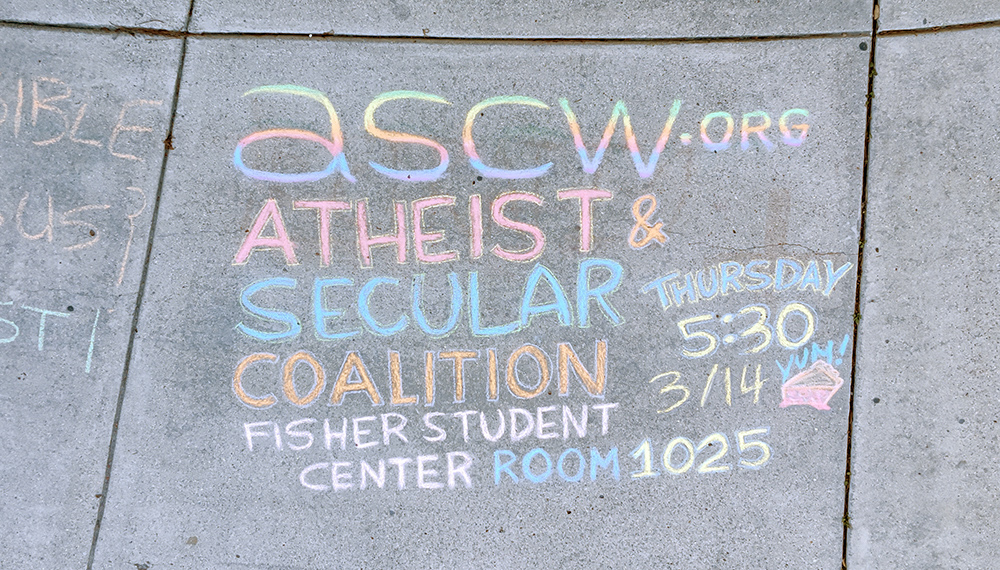 ascw.ORG
ATHEIST &
SECULAR
COALITION
FISHER STUDENT
CENTER ROOM 1025
THURSDAY
5:30
3/14
YUM!
IBLE
US?
ST